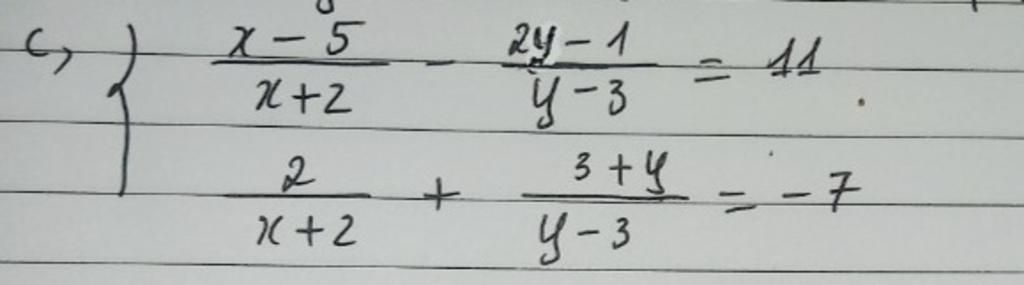 c, { (x - 5)/(x + 2) - (2y - 1)/(y - 3) = 11
2/(x + 2) + (3 + y)/(y - 3) = -7